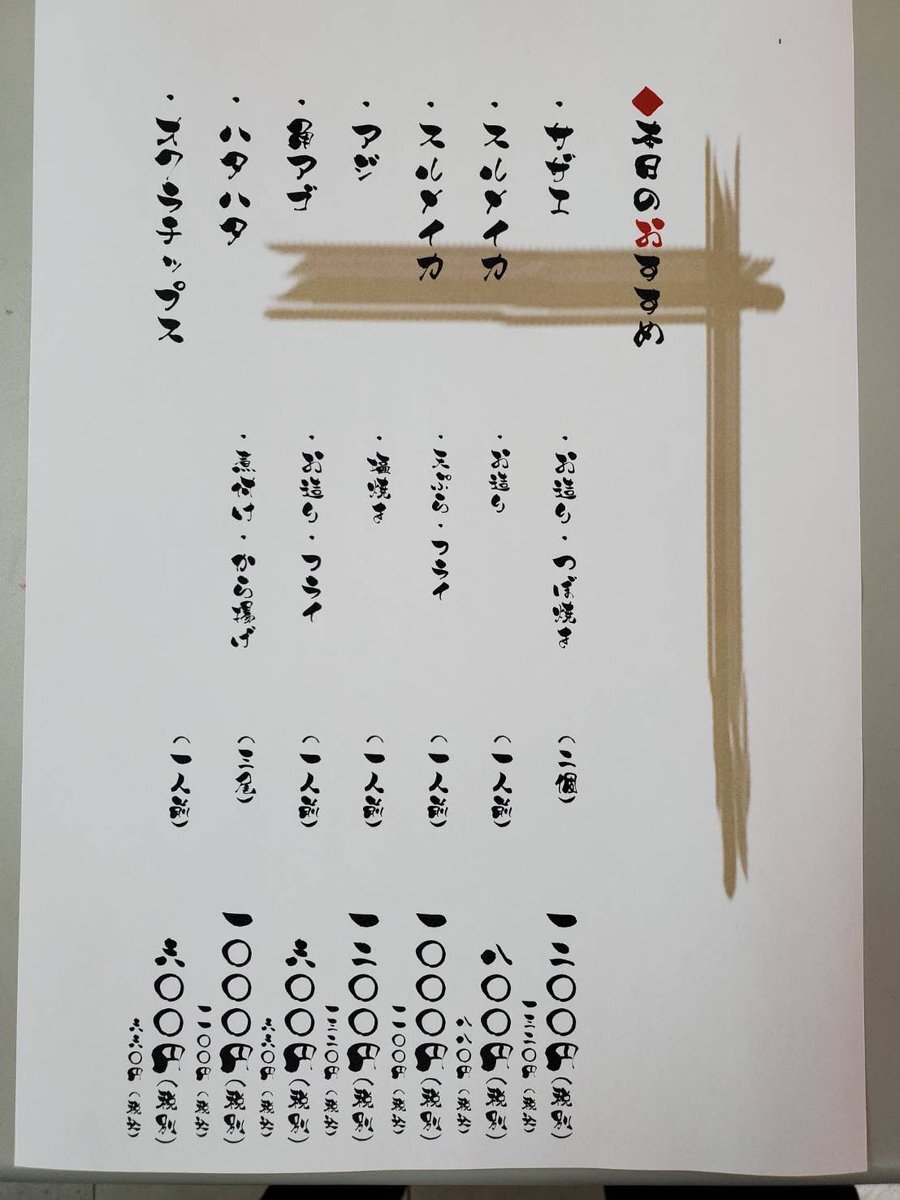 ◆本日のおすすめ
・サザエ ・お造り・つぼ焼き (二個) 一二〇〇円(税別)
一三二〇円(税込)
・スルメイカ ・お造り (一人前) 八〇〇円(税別)
八八〇円(税込)
・スルメイカ ・天ぷら・フライ (一人前) 一〇〇〇円(税別)
一一〇〇円(税込)
・アジ ・塩焼き (一人前) 一二〇〇円(税別)
一三二〇円(税込)
・角アゴ ・お造り・フライ (一人前) 六〇〇円(税別)
六六〇円(税込)
・ハタハタ ・煮付け・から揚げ (三尾) 一〇〇〇円(税別)
一一〇〇円(税込)
・オクラチップス (一人前) 六〇〇円(税別)
六六〇円(税込)